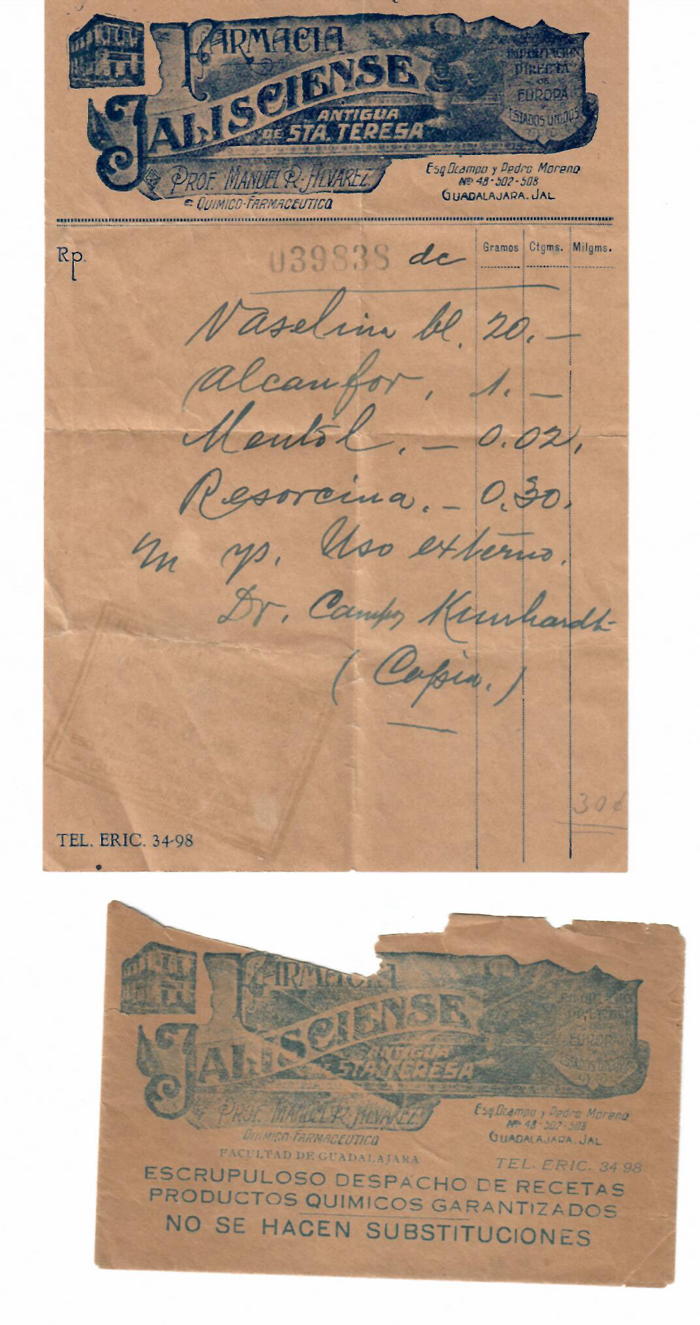 FARMACIA
JALISCIENSE
ANTIGUA
DE STA. TERESA
IMPORTACION
DIRECTA
DE
EUROPA
Y
ESTADOS UNIDOS
PROF. MANUEL R. ALVAREZ
QUIMICO-FARMACEUTICO
Esq Ocampo y Pedro Moreno
Nos 48-502-508
GUADALAJARA. JAL
Rp.
039838 de
Gramos Ctgms. Miligms.
Vaselina bl. 20.—
Alcanfor, 1.—
Mentol.— 0.02.
Resorcina.— 0.30.
m yp. Uso externo.
Dr. Campos Kunhardt
(Copia.)
30¢
TEL. ERIC. 34-98
FARMACIA
JALISCIENSE
ANTIGUA
DE STA. TERESA
DIRECTA
EUROPA
ESTADOS UNIDOS
PROF. MANUEL R. ALVAREZ
QUIMICO-FARMACEUTICO
Esq Ocampo y Pedro Moreno
Nos 48-502-508
GUADALAJARA. JAL
FACULTAD DE GUADALAJARA
TEL. ERIC. 34 98
ESCRUPULOSO DESPACHO DE RECETAS
PRODUCTOS QUIMICOS GARANTIZADOS
NO SE HACEN SUBSTITUCIONES